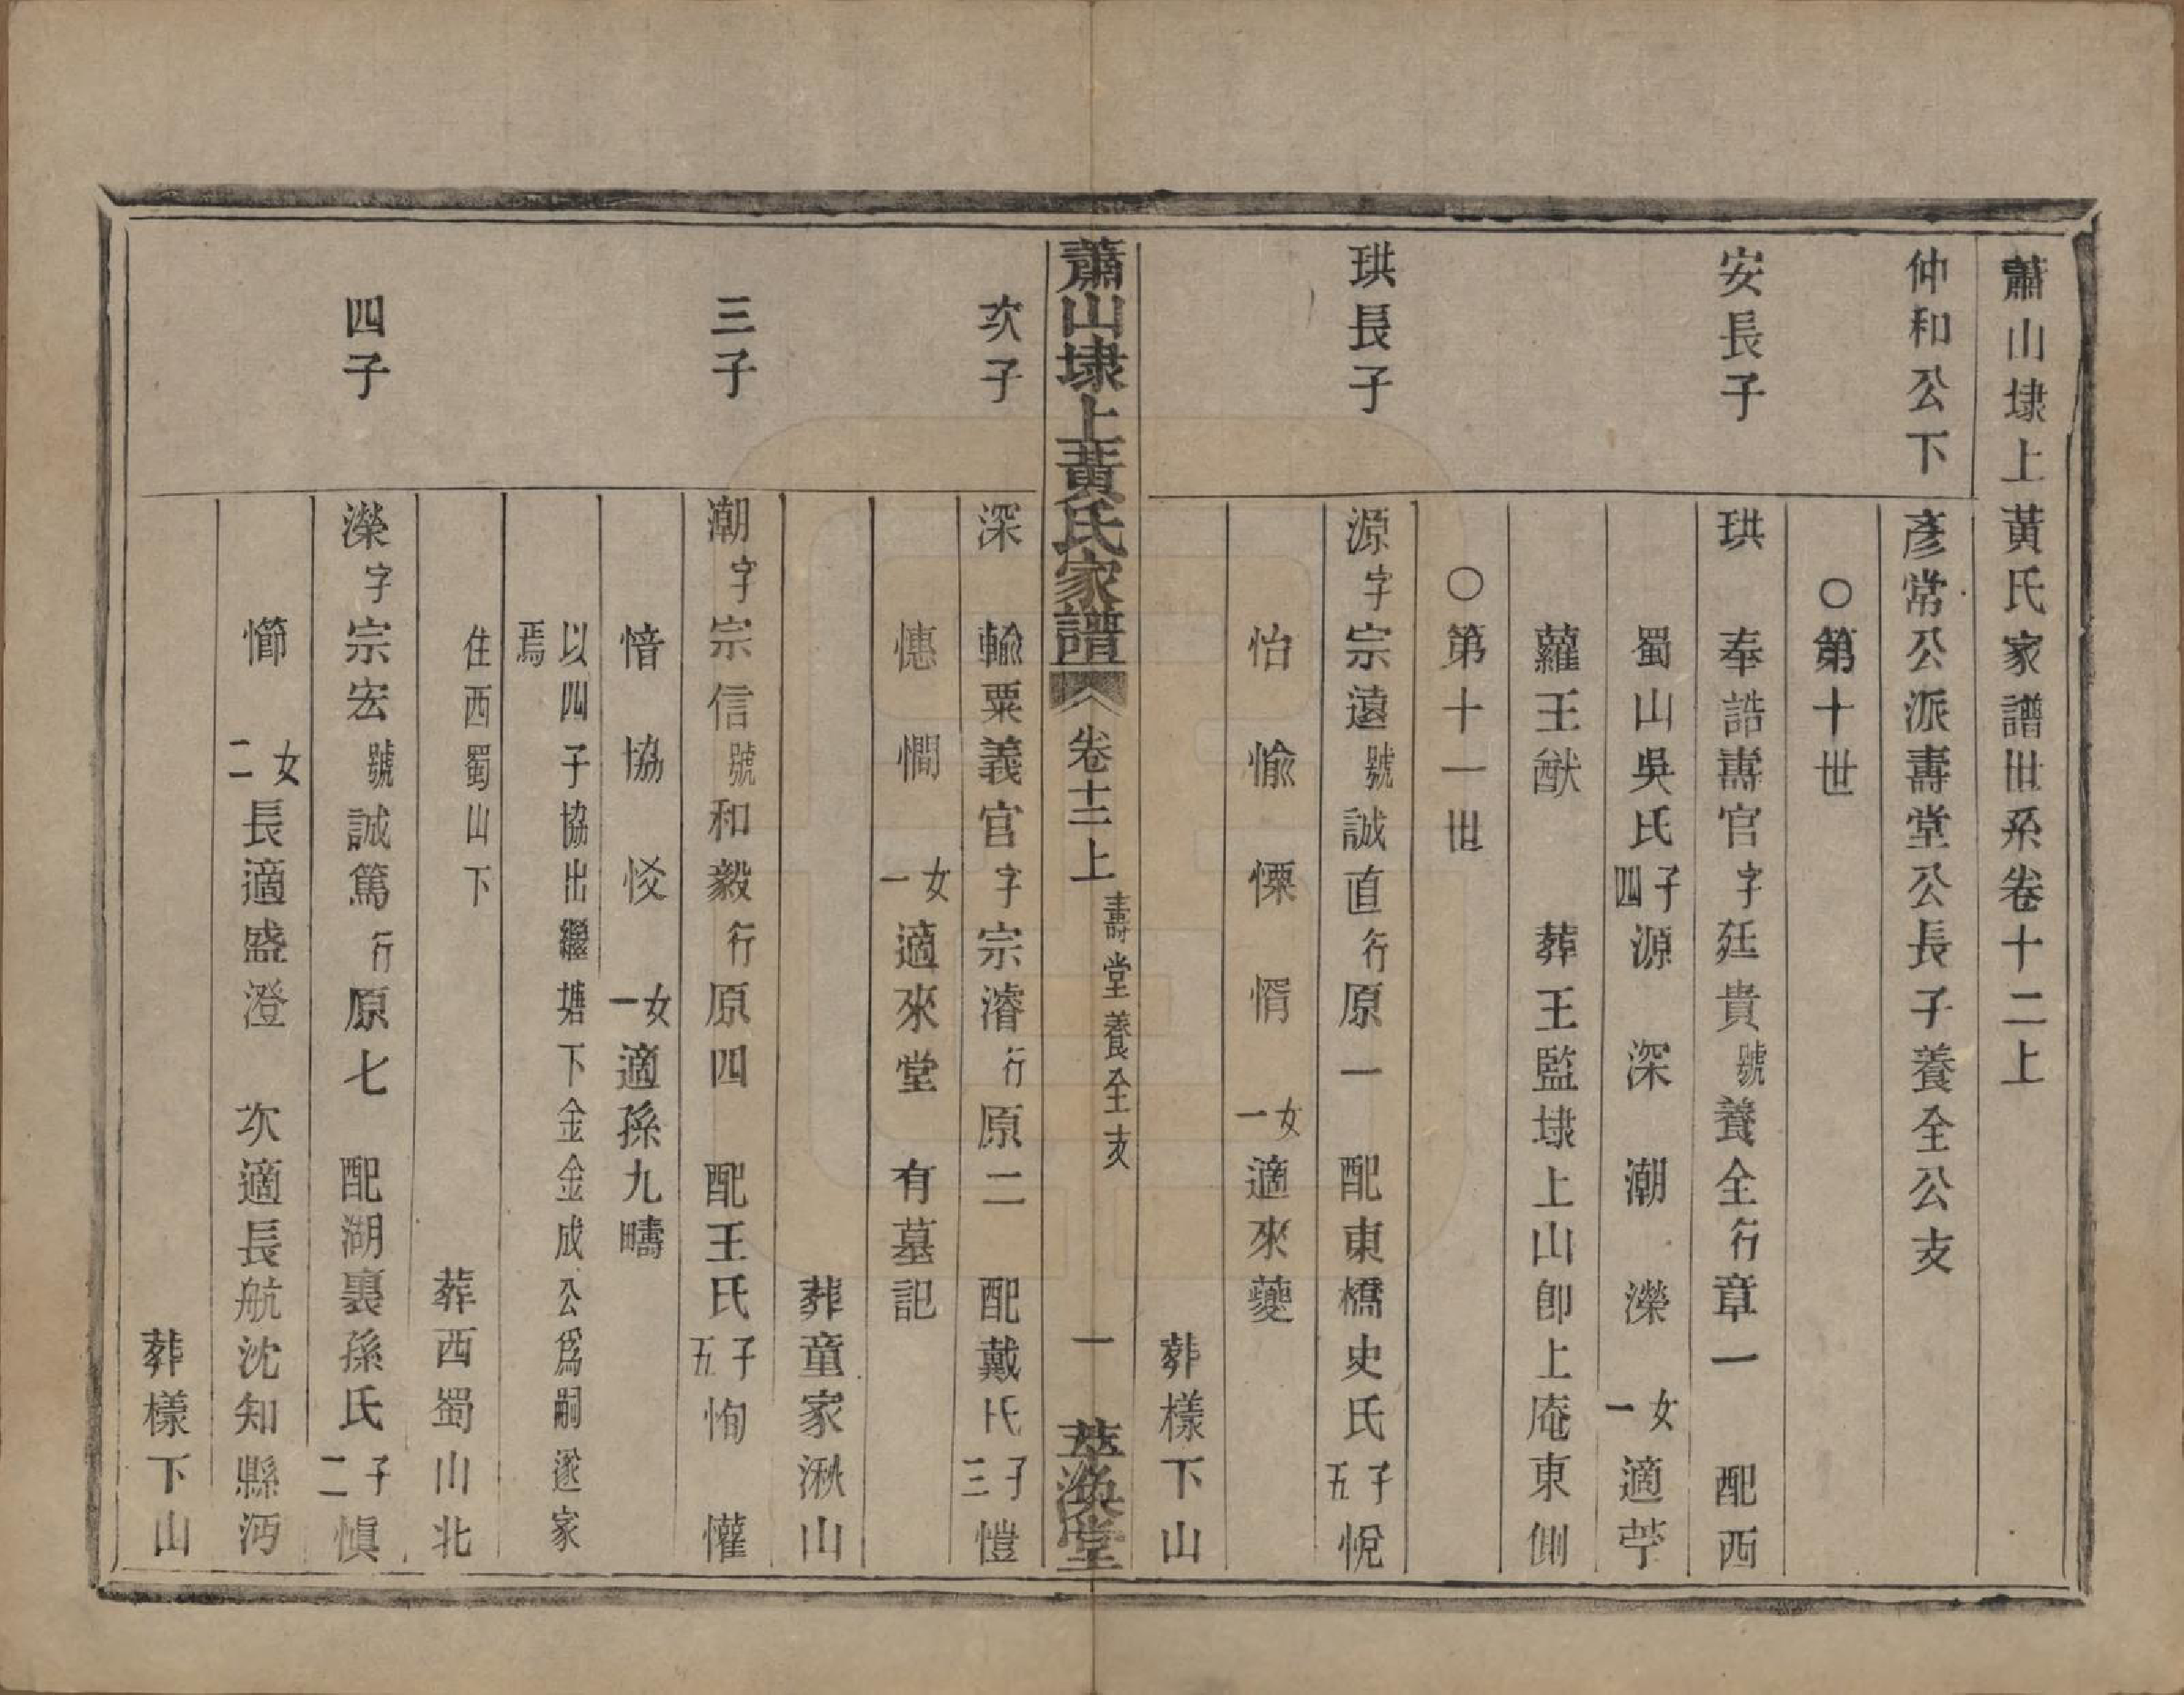 蕭山埭上黃氏家譜世系卷十二上
仲和公下 彥常公派壽堂公長子養全公支
○第十世
安長子 珙 奉誥壽官字廷貴號養全行章一 配西
蜀山吳氏子四源 深 潮 濚 女一適苧
蘿王猷 葬王監埭上山卽上庵東側
○第十一世
珙長子 源字宗遠號誠直行原一 配東橋史氏子五悅
怡 愉 慄 惰 女一適來夔
葬樣下山
蕭山埭上黃氏家譜 卷十二上 壽堂養全支 一 萃渙堂
次子 深 輸粟義官字宗濬行原二 配戴氏子三愷
憓 憪 女一適來堂 有墓記
葬童家湫山
三子 潮字宗信號和毅行原四 配王氏子五恂 懽
愔 協 㤊 女一適孫九疇
以四子協出繼塘下金金成公爲嗣遂家
焉
住西蜀山下 葬西蜀山北
四子 濚字宗宏號誠篤行原七 配湖裏孫氏子二愼
㘉 女二長適盛澄 次適長航沈知縣沔
葬樣下山